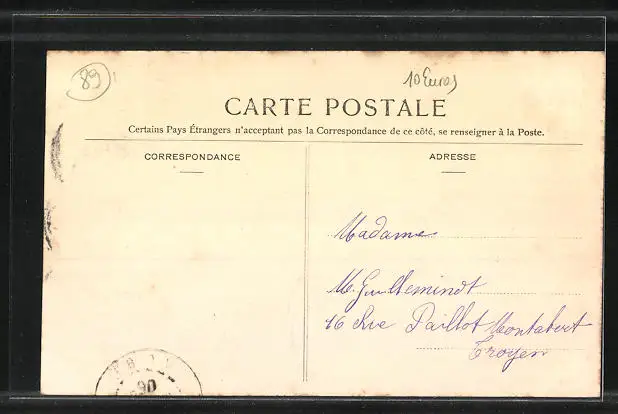 89
10 Euros
CARTE POSTALE
Certains Pays Étrangers n'acceptant pas la Correspondance de ce côté, se renseigner à la Poste.
CORRESPONDANCE
ADRESSE
Madame
M. Guilleminot
16 Rue Paillot Montabert
Troyes